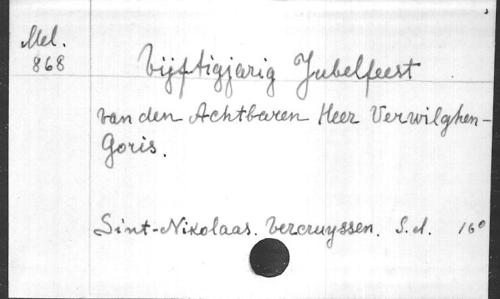 Mel.
868
Vijftigjarig Jubelfeest
van den Achtbaren Heer Verwilghen-
Goris.
Sint-Nikolaas. Vercruyssen. S.d. 16°